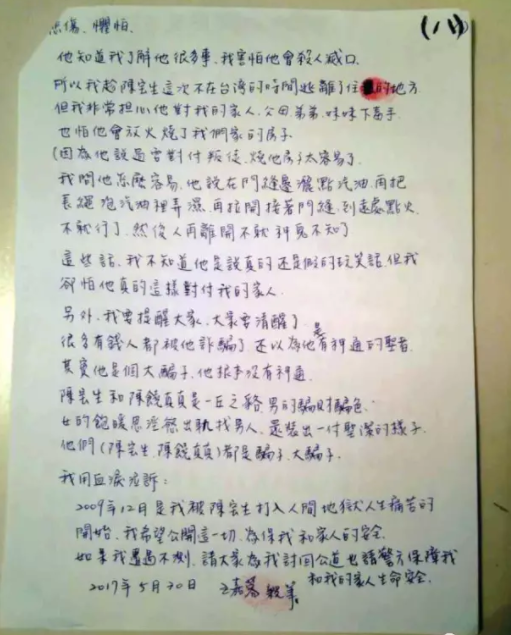 悲傷、懼怕、
(八)
他知道我了解他很多事、我害怕他會殺人滅口、
所以我趁陳宏生這次不在台灣的時間逃離了住的地方
但我非常担心他對我的家人、父母、弟弟、妹妹下毒手、
也怕他會放火燒了我們家的房子
(因為他說是要對付叛徒、燒他房子太容易了
我問他怎麼容易、他說在門縫邊灑點汽油、再把
長繩泡汽油裡弄濕、再拉開接著門縫、到遠處點火、
不就行了、然後人再離開不就神鬼不知了
這些話、我不知道他是說真的還是假的玩笑話、但我
卻怕他真的這樣對付我的家人、
另外、我要提醒大家、大家要清醒了
很多有錢人都被他詐騙了、還以為他是有神通的聖者
其實他是個大騙子、他根本沒有神通、
陳宏生和陳饒真真是一丘之貉、男的騙財騙色、
女的飽暖思淫慾出軌找男人、還裝出一付聖潔的樣子、
他們(陳宏生、陳饒真真)都是騙子、大騙子、
我用血淚控訴:
2009年12月是我被陳宏生打入人間地獄人生痛苦的
開始、我希望公開這一切、為保我和家人的安全、
如果我遇過不測、請大家為我討回公道也請警方保障我
和我的家人生命安全、
2017年5月30日 王嘉